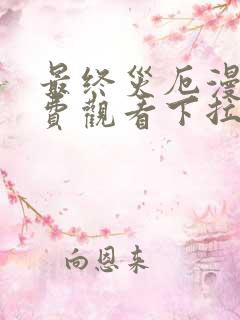 最终災厄漫
費觀看下拉
向恩来